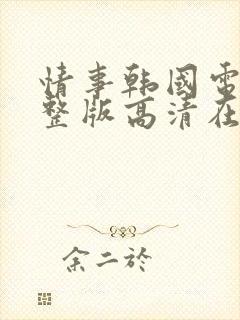 情事韩國電
整版高清在
余二於